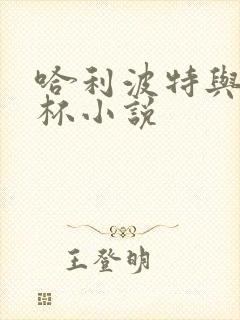 哈利波特與
杯小說
王登明